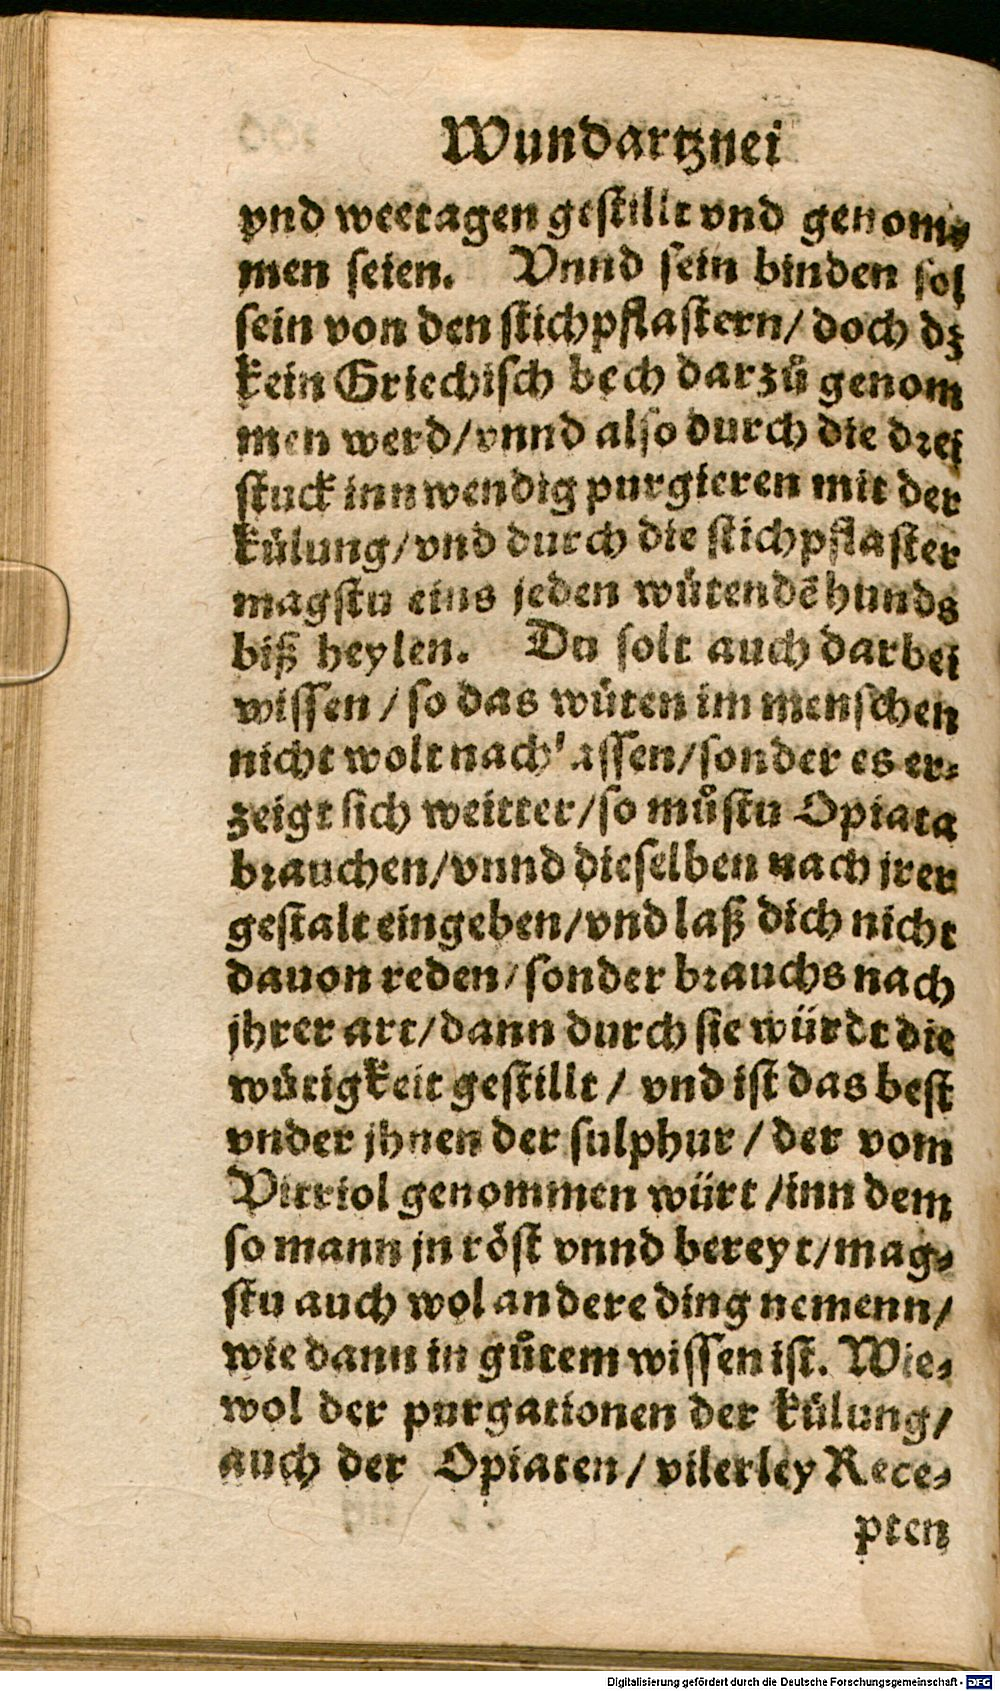 Wundartznei
vnd weetagen gestillt vnd genom⸗
men seien. Vnnd sein binden sol
sein von den stichpflastern/ doch dz
kein Griechisch bech darzuͦ genom
men werd/vnnd also durch die drei
stuck innwendig purgieren mit der
kuͤlung/vnd durch die stichpflaster
magstu eins jeden wuͤtendē hunds
biß heylen. Du solt auch darbei
wissen / so das wuͤten im menschen
nicht wolt nach lassen/sonder es er⸗
zeigt sich weitter/so muͦstu Opiata
brauchen/vnnd dieselben nach jrer
gestalt eingeben/vnd laß dich nicht
dauon reden/sonder brauchs nach
jhrer art/dann durch sie würdt die
wuͤtigkeit gestillt / vnd ist das best
vnder jhnen der sulphur / der vom
Vitriol genommen würt /inn dem
so mann jn roͤst vnnd bereyt/mag⸗
stu auch wol andere ding nemenn/
wie dann in guͦtem wissen ist. Wie⸗
wol der purgationen der kuͤlung/
auch der Opiaten / vilerley Rece⸗
pten
Digitalisierung gefördert durch die Deutsche Forschungsgemeinschaft - DFG